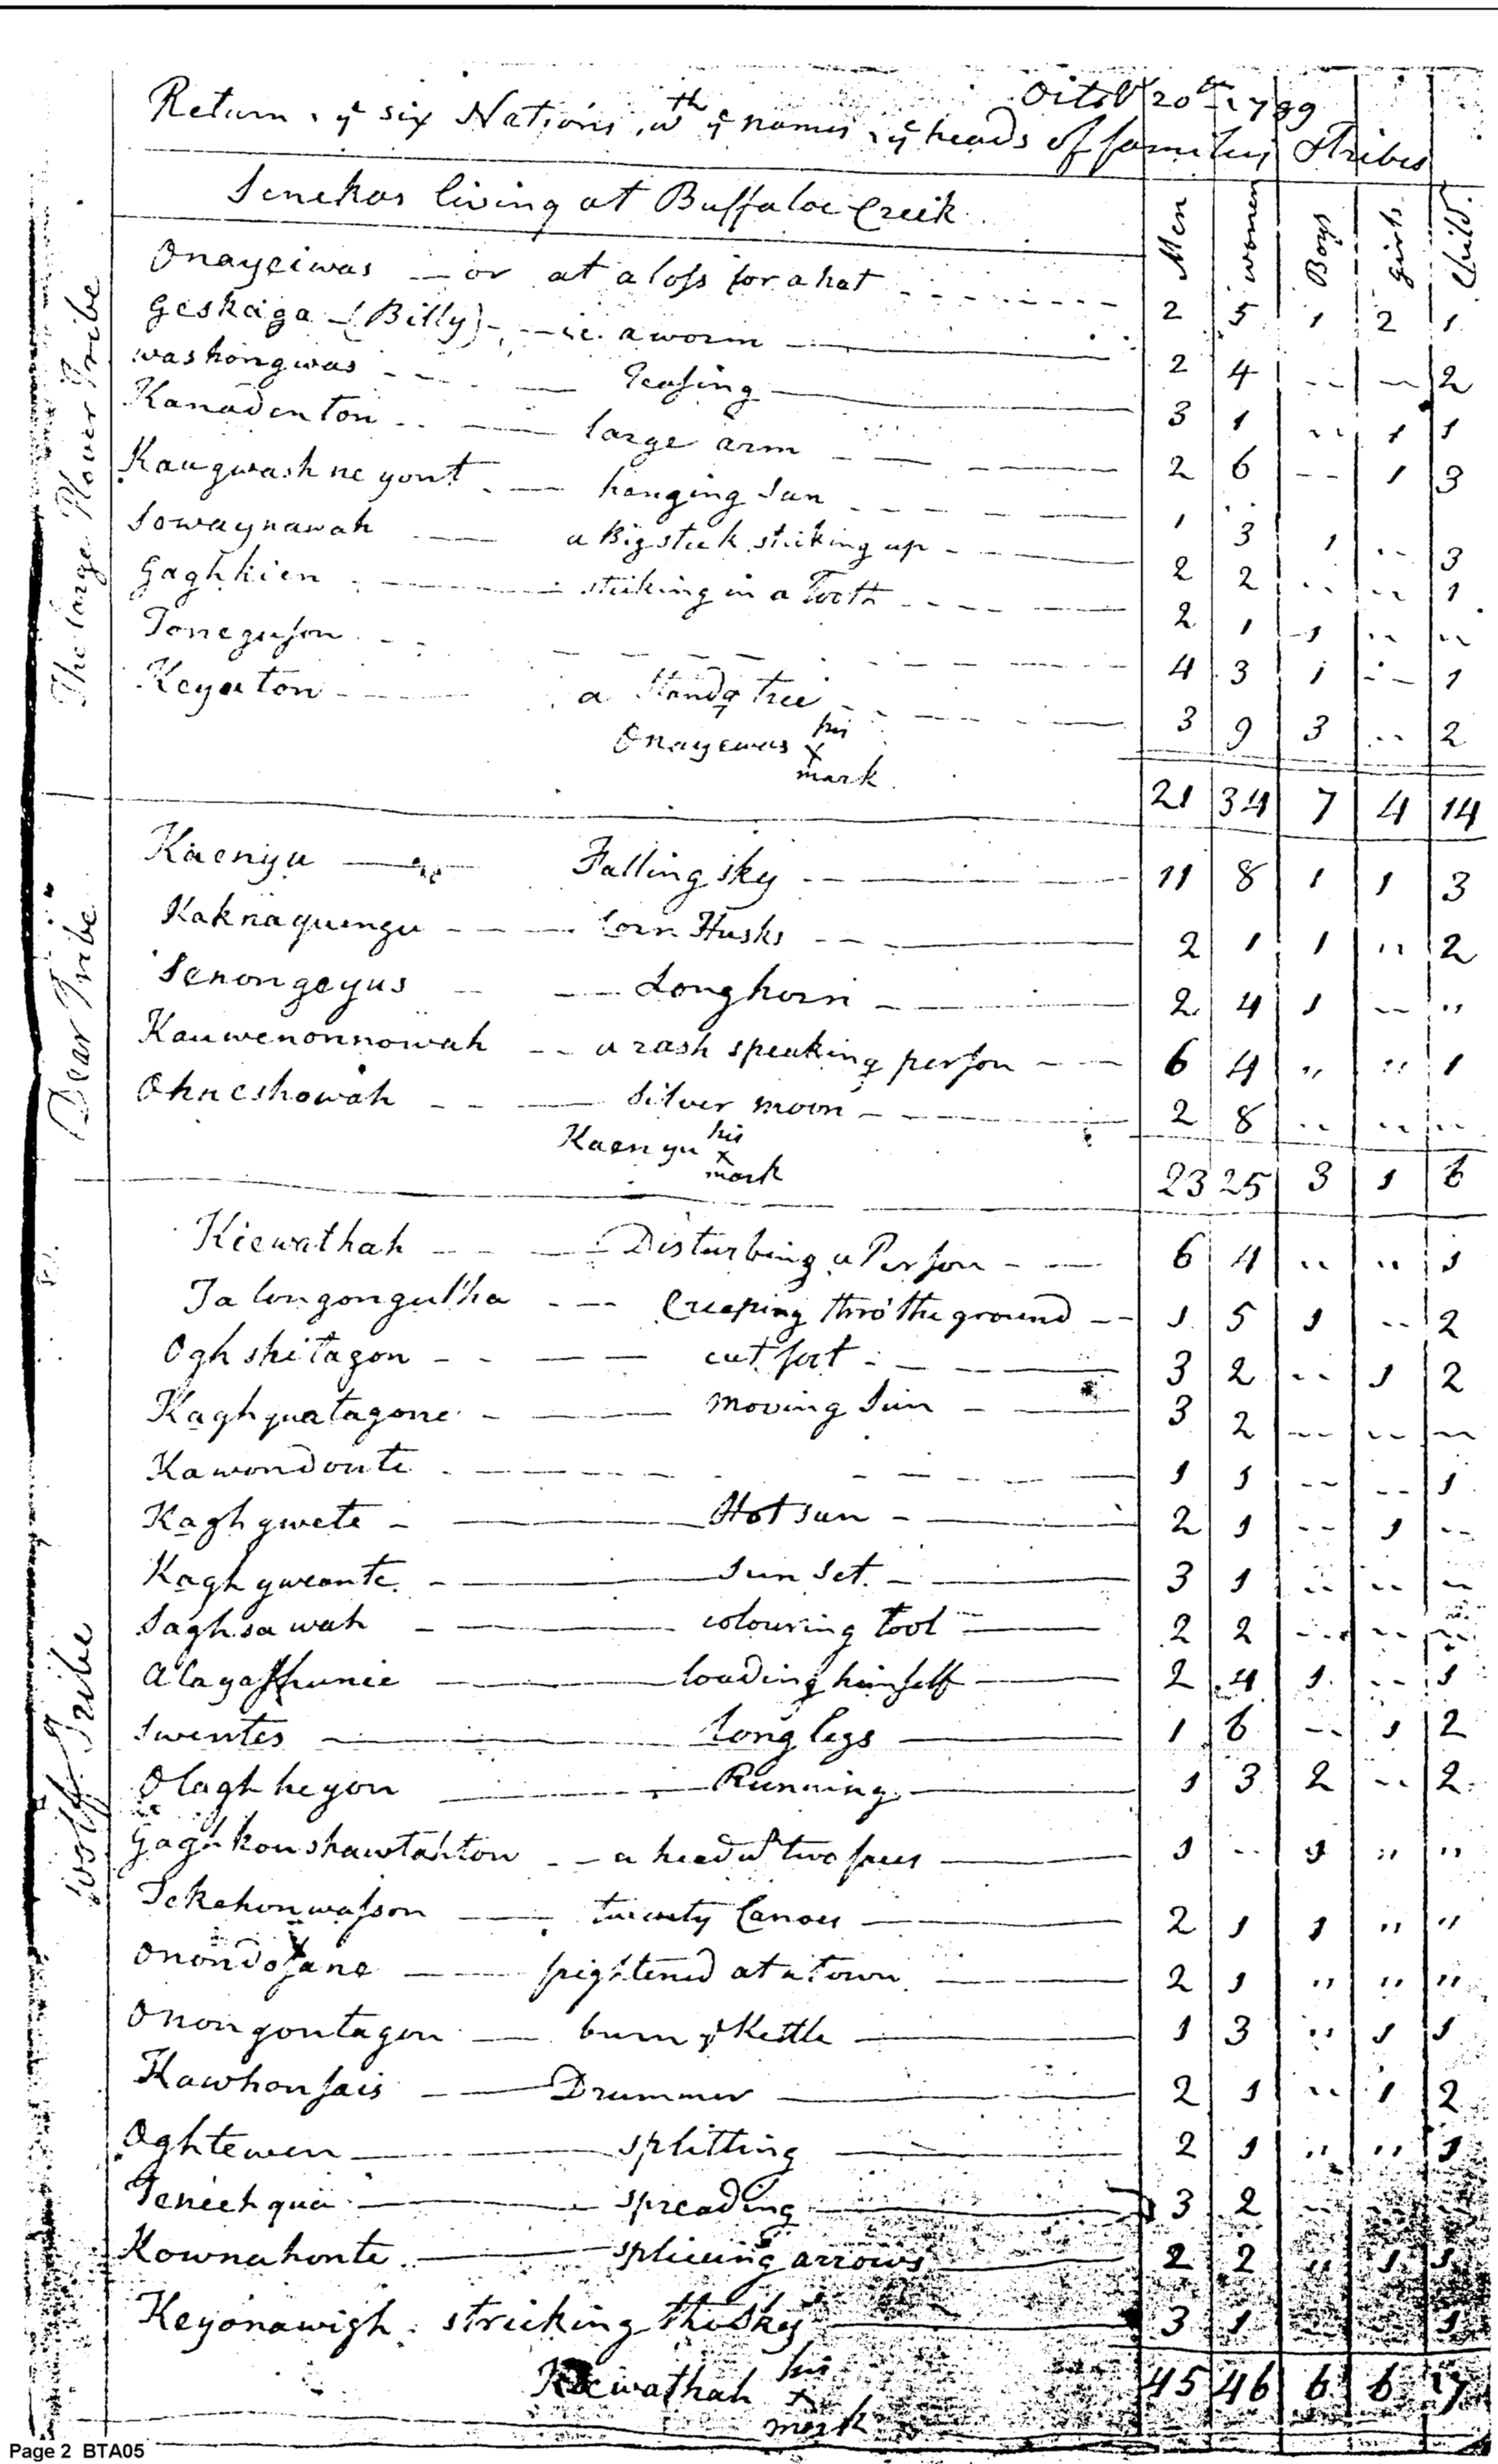 Octob 20th 1789
Return . of six Nations, wth ye names . ye heads of families Tribes
Senekas living at Buffaloe Creek Men women Boys girls Child.
The large Plover Tribe
Onayeiwas — or at a loss for a hat 2 5 1 2 1
Geskaga — (Billy) — ie. a worm 2 4 -- -- 2
washongwas — Teasing 3 1 -- 1 1
Kanadenton — large arm 2 6 -- 1 3
Kaugwashneyont — hanging Sun 1 3 1 -- 3
Sowaynawah — a Big stick sticking up 2 2 -- -- 1
Gaghkien — sticking in a Tooth 2 1 1 -- --
Toneguson 4 3 1 -- 1
Keyuton — a Tree 3 9 3 -- 2
Onayewas his x mark
21 34 7 4 14
Bear Tribe
Kaenyu — Falling sky 11 8 1 1 3
Kaknaquengu — Corn Husks 2 1 1 " 2
Senongeyus — Longhorn 2 4 1 -- "
Kauwenonnowah — a rash speaking person 6 4 " " 1
Ohneshowah — Silver moon 2 8 -- -- --
Kaenyu his x mark
23 25 3 1 6
Wolf Tribe
Kiewathah — Disturbing a Person 6 4 -- -- 1
Talongongutha — Creeping thro' the ground 1 5 1 -- 2
Oghshitagon — cut foot 3 2 -- 1 2
Kaghquatagone — moving Sun 3 2 -- -- --
Kawondonte 1 1 -- -- 1
Kaghgwete — Hot sun 2 1 -- 1 --
Kaghgweonte — Sun Set. 3 1 -- -- --
Saghsawah — colouring tool 2 2 -- -- --
Alagashunie — loading himself 2 4 1 -- 1
Swentes — Long legs 1 6 -- 1 2
Olaghheyon — Running 1 3 2 -- 2
Gaghkonshawtahton — a head wth two faces 1 -- 1 " "
Tekahonwasson — twenty Canoes 2 1 1 " "
Onondosane — frightened at a town 2 1 " " "
Onongontagon — burn ye Kettle 1 3 " 1 1
Kawhonsais — Drummer 2 1 -- 1 2
Oghtewen — splitting 2 1 " " 1
Teneehqua — spreading 3 2 --
Kownahonte — splicing arrows 2 2 " 1 1
Keyonawigh . stricking the Sky 3 1 1
Kiewathah his x mark
45 46 6 6 17
Page 2 BTA05